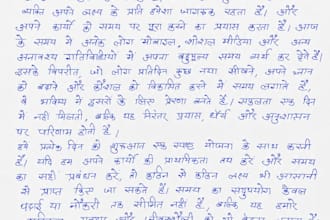 व्यक्ति अपने लक्ष्य के प्रति हमेशा जागरूक रहता है। और
अपने कार्यों को समय पर पूरा करने का प्रयास करता है। आज
के समय में अनेक लोग मोबाइल, सोशल मीडिया और अन्य
अनावश्यक गतिविधियों में अपना बहुमूल्य समय व्यर्थ कर देते हैं।
इसके विपरीत, जो लोग प्रतिदिन कुछ नया सीखने, अपने ज्ञान
को बढ़ाने और कौशल को विकसित करने में समय लगाते हैं,
वे भविष्य में दूसरों के लिए प्रेरणा बनते हैं। सफलता एक दिन
में नहीं मिलती, बल्कि यह निरंतर प्रयास, धैर्य और अनुशासन
का परिणाम होती है।
हमें प्रत्येक दिन की शुरुआत एक स्पष्ट योजना के साथ करनी
है। यदि हम अपने कार्यों की प्राथमिकता तय करें और समय
का सही प्रबंधन करें, तो कठिन से कठिन लक्ष्य भी आसानी
से प्राप्त किए जा सकते हैं। समय का सदुपयोग केवल
पढ़ाई या नौकरी तक सीमित नहीं है, बल्कि यह हमारे